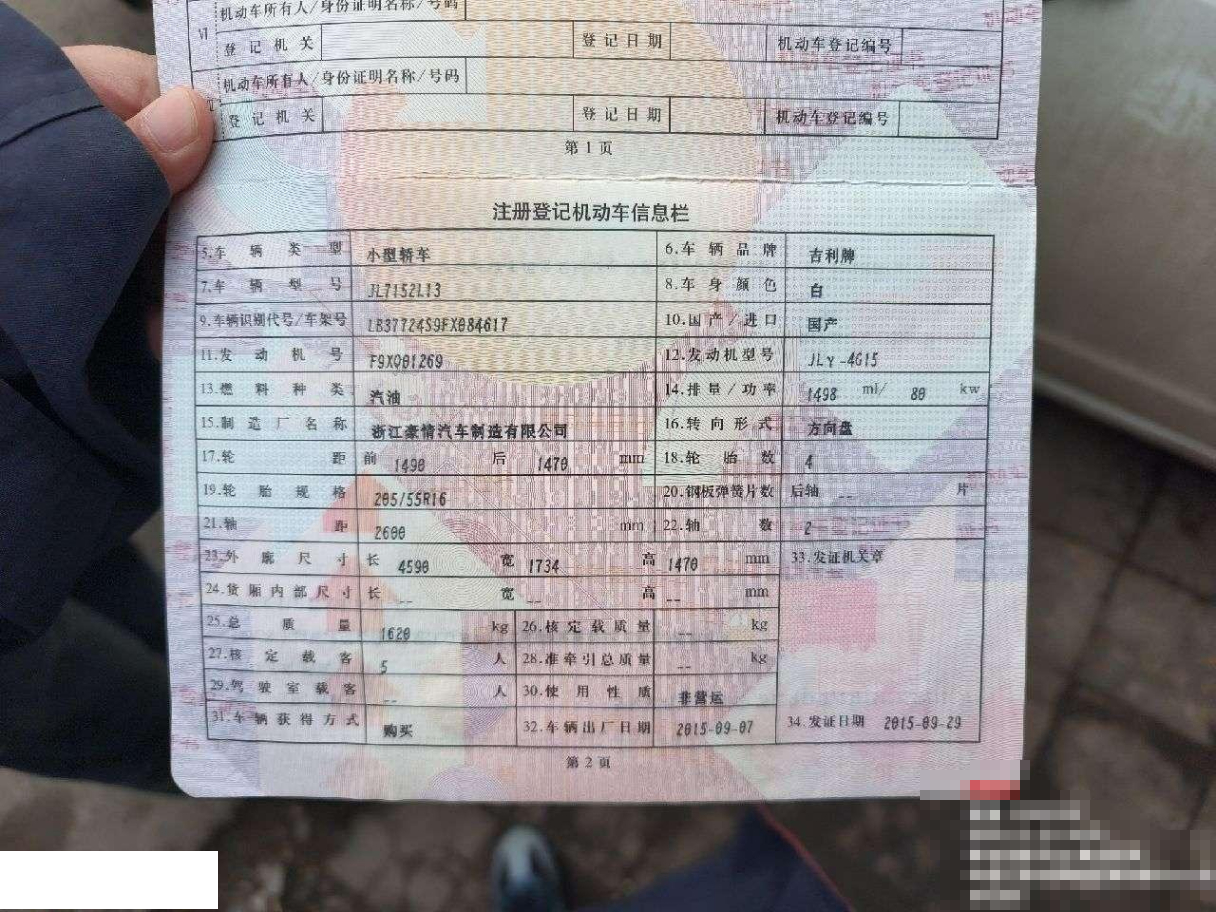 机动车所有人/身份证明名称/号码
Ⅵ 登记机关 登记日期 机动车登记编号
机动车所有人/身份证明名称/号码
登记机关 登记日期 机动车登记编号
第 1 页
注册登记机动车信息栏
5.车辆类型 小型轿车 6.车辆品牌 吉利牌
7.车辆型号 JL7152L13 8.车身颜色 白
9.车辆识别代号/车架号 LB37724S9FX084617 10.国产/进口 国产
11.发动机号 F9XQ01269 12.发动机型号 JLγ-4G15
13.燃料种类 汽油 14.排量/功率 1498 ml/ 80 kw
15.制造厂名称 浙江豪情汽车制造有限公司 16.转向形式 方向盘
17.轮距 前 1490 后 1470 mm 18.轮胎数 4
19.轮胎规格 205/55R16 20.钢板弹簧片数 后轴 -- 片
21.轴距 2600 mm 22.轴数 2
23.外廓尺寸 长 4590 宽 1734 高 1470 mm 33.发证机关章
24.货厢内部尺寸 长 -- 宽 -- 高 -- mm
25.总质量 1620 kg 26.核定载质量 -- kg
27.核定载客 5 人 28.准牵引总质量 -- kg
29.驾驶室载客 -- 人 30.使用性质 非营运
31.车辆获得方式 购买 32.车辆出厂日期 2015-09-07 34.发证日期 2015-09-29
第 2 页